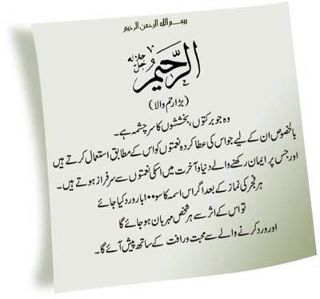 بسم اللہ الرحمن الرحیم
الرَّحِيمُ جل جلالہ
(بڑا رحم والا)
وہ جو برکتوں، بخششوں کا سرچشمہ ہے۔
بالخصوص ان کے لیے جو اس کی عطا کردہ نعمتوں کو اس کے مطابق استعمال کرتے ہیں
اور جس پر ایمان رکھنے والے دنیا و آخرت میں اسکی نعمتوں سے سرفراز ہوتے ہیں۔
ہر فجر کی نماز کے بعد اگر اس اسم کا سو ۱۰۰ بار ورد کیا جائے
تو اس کے اثر سے ہر شخص مہربان ہو جائے گا
اور ورد کرنے والے سے محبت و رافت کے ساتھ پیش آئے گا۔